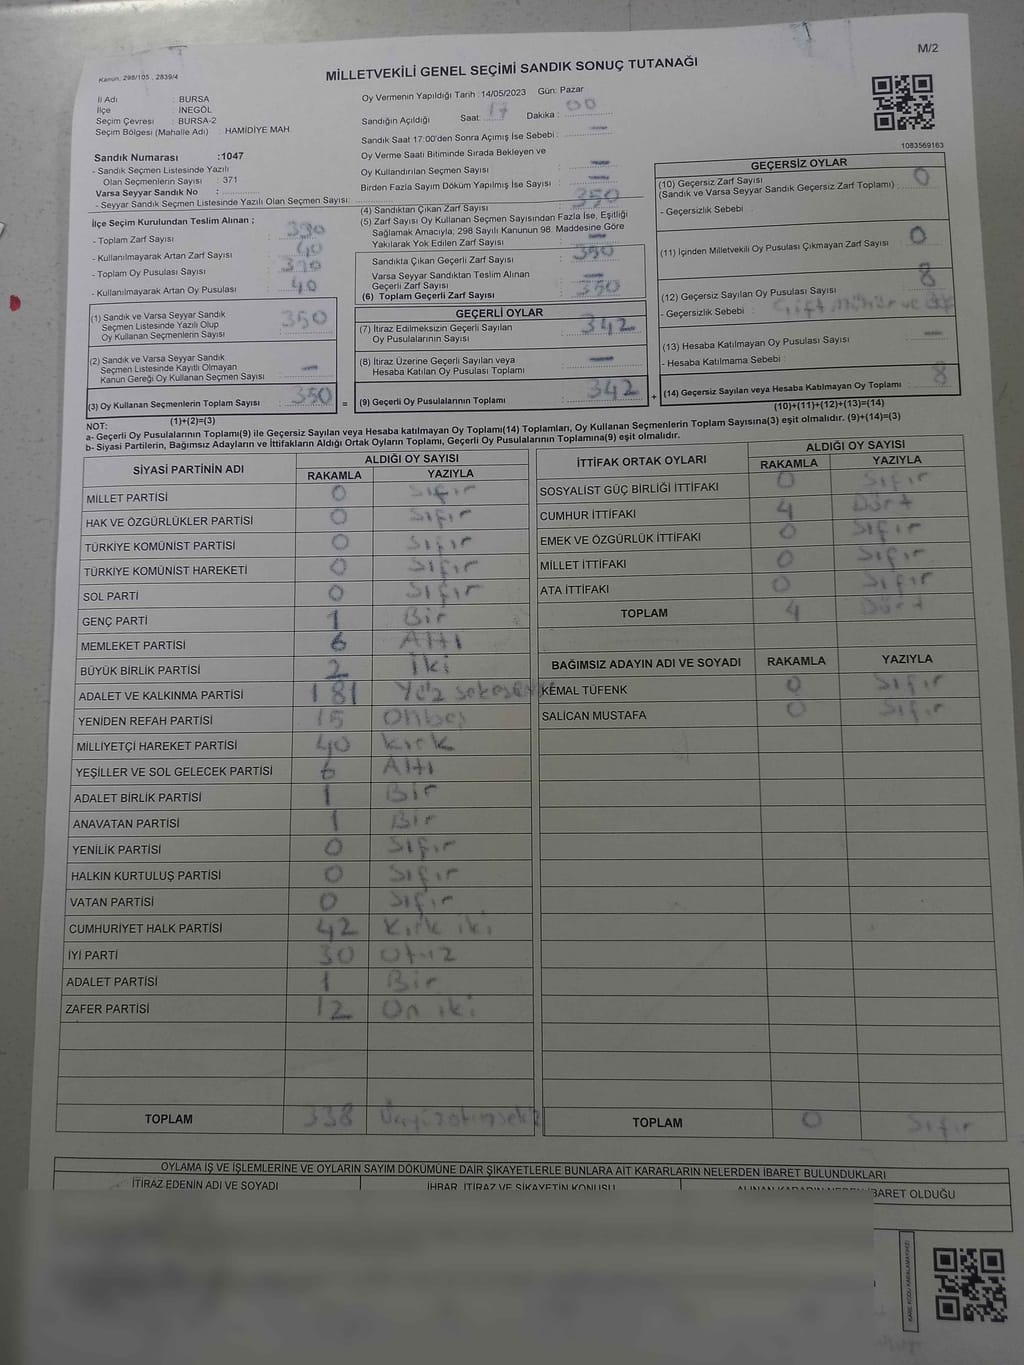 M/2
Kanun, 298/105 , 2839/4
MİLLETVEKİLİ GENEL SEÇİMİ SANDIK SONUÇ TUTANAĞI
İl Adı : BURSA
İlçe : İNEGÖL
Seçim Çevresi : BURSA-2
Seçim Bölgesi (Mahalle Adı) : HAMİDİYE MAH.
Sandık Numarası :1047
- Sandık Seçmen Listesinde Yazılı
Olan Seçmenlerin Sayısı : 371
Varsa Seyyar Sandık No :
- Seyyar Sandık Seçmen Listesinde Yazılı Olan Seçmen Sayısı:
Oy Vermenin Yapıldığı Tarih : 14/05/2023 Gün: Pazar
Sandığın Açıldığı Saat: 17 Dakika : 00
Sandık Saat 17:00'den Sonra Açımış İse Sebebi : —
Oy Verme Saati Bitiminde Sırada Bekleyen ve
Oy Kullandırılan Seçmen Sayısı : —
Birden Fazla Sayım Döküm Yapılmış İse Sayısı : —
1083569163
İlçe Seçim Kurulundan Teslim Alınan ;
- Toplam Zarf Sayısı : 390
- Kullanılmayarak Artan Zarf Sayısı : 40
- Toplam Oy Pusulası Sayısı : 390
- Kullanılmayarak Artan Oy Pusulası : 40
(1) Sandık ve Varsa Seyyar Sandık
Seçmen Listesinde Yazılı Olup
Oy Kullanan Seçmenlerin Sayısı : 350
(2) Sandık ve Varsa Seyyar Sandık
Seçmen Listesinde Kayıtlı Olmayan
Kanun Gereği Oy Kullanan Seçmen Sayısı : —
(3) Oy Kullanan Seçmenlerin Toplam Sayısı : 350 =
(1)+(2)=(3)
(4) Sandıktan Çıkan Zarf Sayısı : 350
(5) Zarf Sayısı Oy Kullanan Seçmen Sayısından Fazla İse, Eşitliği
Sağlamak Amacıyla; 298 Sayılı Kanunun 98. Maddesine Göre
Yakılarak Yok Edilen Zarf Sayısı : —
Sandıkta Çıkan Geçerli Zarf Sayısı : 350
Varsa Seyyar Sandıktan Teslim Alınan
Geçerli Zarf Sayısı : —
(6) Toplam Geçerli Zarf Sayısı : 350
GEÇERLİ OYLAR
(7) İtiraz Edilmeksizin Geçerli Sayılan
Oy Pusulalarının Sayısı : 342
(8) İtiraz Üzerine Geçerli Sayılan veya
Hesaba Katılan Oy Pusulası Toplamı : —
(9) Geçerli Oy Pusulalarının Toplamı : 342 +
GEÇERSİZ OYLAR
(10) Geçersiz Zarf Sayısı
(Sandık ve Varsa Seyyar Sandık Geçersiz Zarf Toplamı) : 0
- Geçersizlik Sebebi :
(11) İçinden Milletvekili Oy Pusulası Çıkmayan Zarf Sayısı : 0
(12) Geçersiz Sayılan Oy Pusulası Sayısı : 8
- Geçersizlik Sebebi : Çift Mühür ve
(13) Hesaba Katılmayan Oy Pusulası Sayısı : —
- Hesaba Katılmama Sebebi :
(14) Geçersiz Sayılan veya Hesaba Katılmayan Oy Toplamı : 8
(10)+(11)+(12)+(13)=(14)
NOT:
a- Geçerli Oy Pusulalarının Toplamı(9) ile Geçersiz Sayılan veya Hesaba katılmayan Oy Toplamı(14) Toplamları, Oy Kullanan Seçmenlerin Toplam Sayısına(3) eşit olmalıdır. (9)+(14)=(3)
b- Siyasi Partilerin, Bağımsız Adayların ve İttifakların Aldığı Ortak Oyların Toplamı, Geçerli Oy Pusulalarının Toplamına(9) eşit olmalıdır.
SİYASİ PARTİNİN ADI ALDIĞI OY SAYISI
RAKAMLA YAZIYLA
MİLLET PARTİSİ 0 Sıfır
HAK VE ÖZGÜRLÜKLER PARTİSİ 0 Sıfır
TÜRKİYE KOMÜNİST PARTİSİ 0 Sıfır
TÜRKİYE KOMÜNİST HAREKETİ 0 Sıfır
SOL PARTİ 0 Sıfır
GENÇ PARTİ 1 Bir
MEMLEKET PARTİSİ 6 Altı
BÜYÜK BİRLİK PARTİSİ 2 İki
ADALET VE KALKINMA PARTİSİ 181 Yüz
YENİDEN REFAH PARTİSİ 15 Onbeş
MİLLİYETÇİ HAREKET PARTİSİ 40 Kırk
YEŞİLLER VE SOL GELECEK PARTİSİ 6 Altı
ADALET BİRLİK PARTİSİ 1 Bir
ANAVATAN PARTİSİ 1 Bir
YENİLİK PARTİSİ 0 Sıfır
HALKIN KURTULUŞ PARTİSİ 0 Sıfır
VATAN PARTİSİ 0 Sıfır
CUMHURİYET HALK PARTİSİ 42 Kırk iki
İYİ PARTİ 30 Otuz
ADALET PARTİSİ 1 Bir
ZAFER PARTİSİ 12 On iki
TOPLAM 338
İTTİFAK ORTAK OYLARI ALDIĞI OY SAYISI
RAKAMLA YAZIYLA
SOSYALİST GÜÇ BİRLİĞİ İTTİFAKI 0 Sıfır
CUMHUR İTTİFAKI 4 Dört
EMEK VE ÖZGÜRLÜK İTTİFAKI 0 Sıfır
MİLLET İTTİFAKI 0 Sıfır
ATA İTTİFAKI 0 Sıfır
TOPLAM 4 Dört
BAĞIMSIZ ADAYIN ADI VE SOYADI RAKAMLA YAZIYLA
KEMAL TÜFENK 0 Sıfır
SALİCAN MUSTAFA 0 Sıfır
TOPLAM 0 Sıfır
OYLAMA İŞ VE İŞLEMLERİNE VE OYLARIN SAYIM DÖKÜMÜNE DAİR ŞİKAYETLERLE BUNLARA AİT KARARLARIN NELERDEN İBARET BULUNDUKLARI
İTİRAZ EDENİN ADI VE SOYADI İHBAR, İTİRAZ VE ŞİKAYETİN KONUSU ALINAN KARARIN NEDEN İBARET OLDUĞU